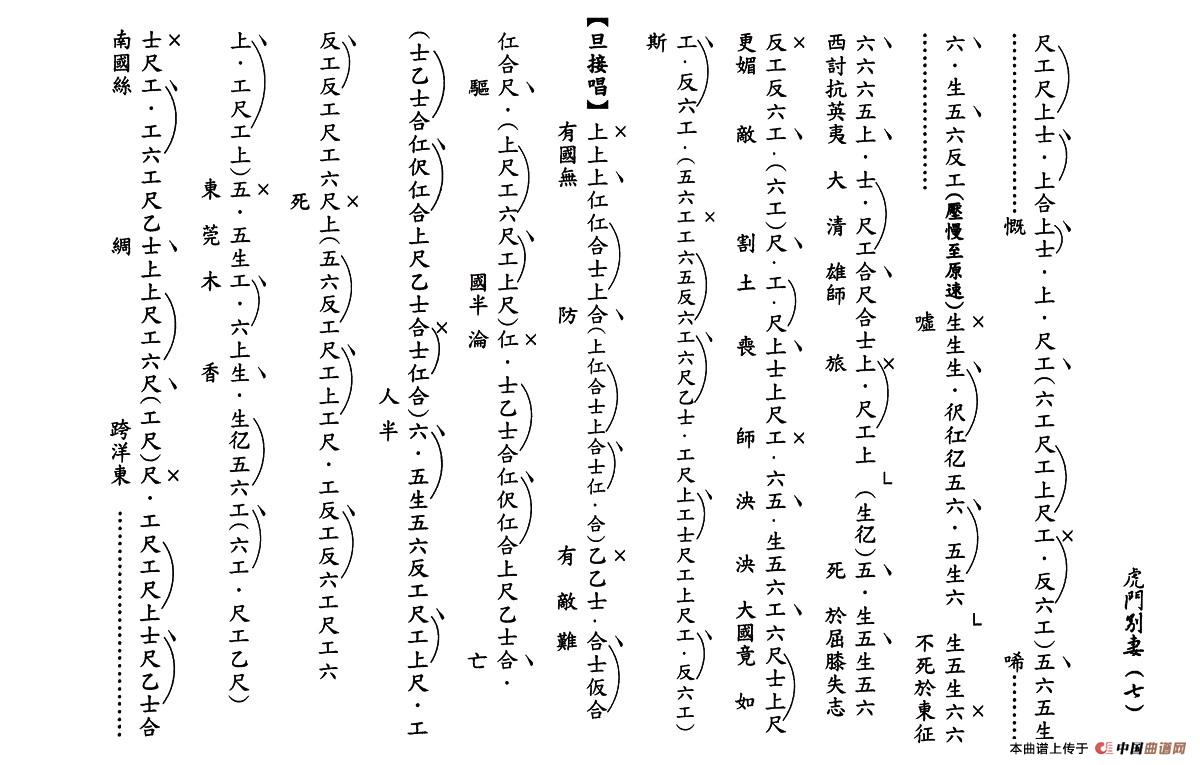 虎門別妻（七）
尺工尺上士．上合上士．上．尺工（六工尺工上尺工．反六工）五六五生
⋯⋯慨 唏⋯⋯
六．生五六反工（壓慢至原速）生生生．伬仜亿五六．五生六 生五生六六
⋯⋯噓 不死於東征
六六六五上．士．尺工合尺合士上．尺工上（生亿）五．生五生五六
西討抗英夷 大清雄師旅 死於屈膝失志
反工反六工．（六工）尺．工．尺上士上尺工．六五．生五六工六尺士上尺
更媚敵 割土喪師 泱泱大國竟如
工．反六工．（五六工工六五反六工六尺乙士．工尺上工士尺工上尺工．反六工）
斯
【旦接唱】上上上仁仁合士上合（上仁合士上合士仁．合）乙乙士．合士仮合
有國無防 有敵難
仁合尺．（上尺工六尺工上尺）仁．士乙士合仁伬仁合上尺乙士合．
驅 國半淪亡
（士乙士合仁伬仁合上尺乙士合士仁合）六．五生五六反工尺工上尺．工
人半
反工反工尺工六尺上（五六反工尺工上工尺．工反工反六工尺工六
死
上．工尺工上）五．五生工．六上生．生亿五六工（六工．尺工乙尺）
東莞木香
士尺工．工六工尺乙士上上尺工六尺（工尺）尺．工尺工尺上士尺乙士合
南國絲綢 跨洋東⋯⋯
本曲谱上传于 中国曲谱网